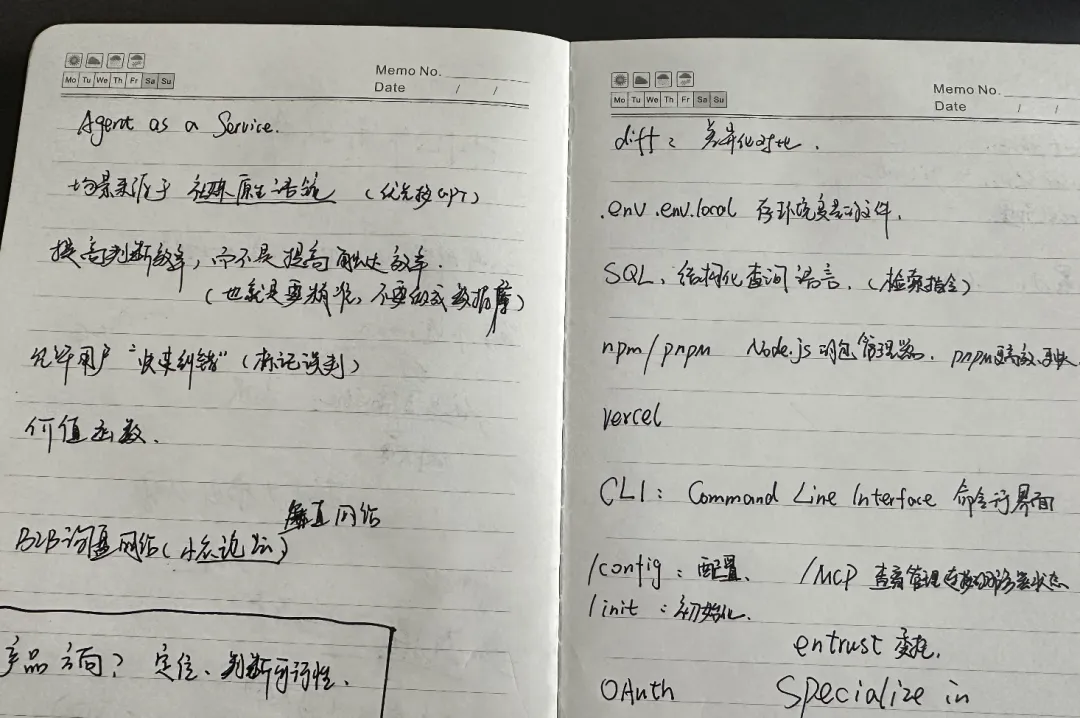 Mo Tu We Th Fr Sa Su
Memo No.
Date / /
Agent as a Service.
场景来源于 社媒原生语境 (优先接GPT)
提高判断效率，而不是提高触达效率.
(也就是要精准，不要做成数据库)
允许用户“快速纠错”(标记误判)
价值函数、
垂直网络
B2B询盘网络(小众论坛)
产品方向？定位、判断可行性、
Mo Tu We Th Fr Sa Su
Memo No.
Date / /
diff：差异化对比.
.env .env.local 存环境变量的文件.
SQL、结构化查询语言.(检索指令)
npm/pnpm Node.js的包管理器. pnpm更高效、更快
vercel
CLI: Command Line Interface 命令行界面
/config：配置、 /MCP 查看管理连接的服务器状态
/init：初始化.
entrust 委托.
OAuth Specialize in